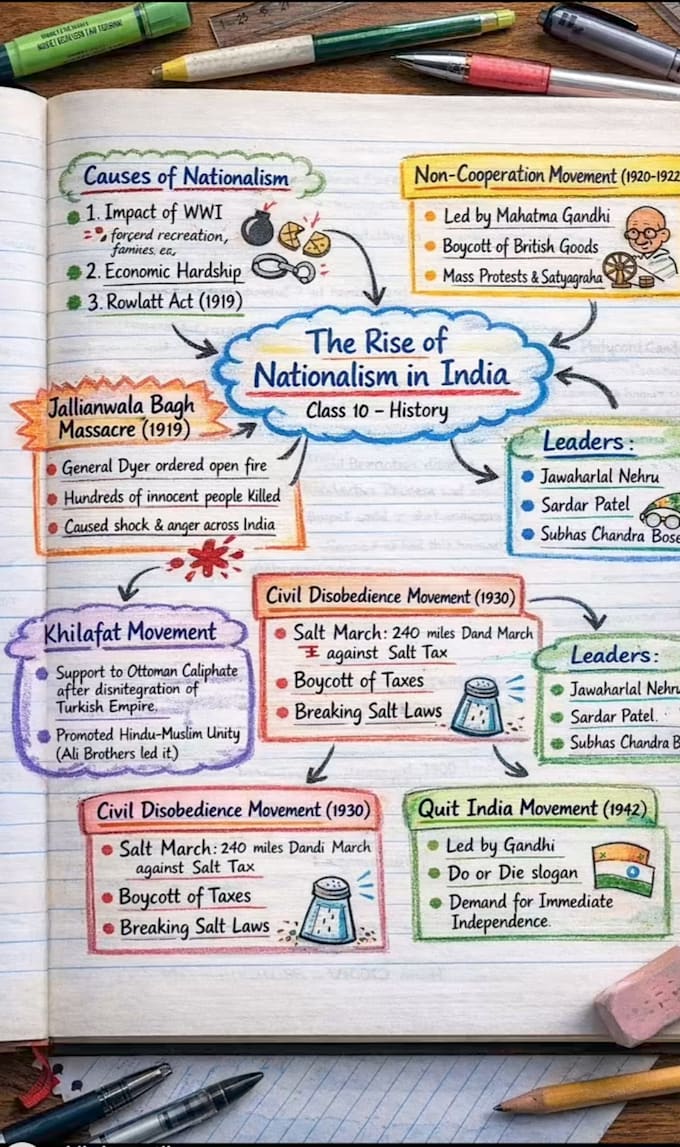 Causes of Nationalism
1. Impact of WWI
forçerd recreation,
famires, ea,
2. Economic Hardship
3. Rowlatt Act (1919)
Non-Cooperation Movement (1920-1922
Led by Mahatma Gandhi
Boycott of British Goods
Mass Protests & Satyagraha
The Rise of
Nationalism in India
Class 10 – History
Jallianwala Bagh
Massacre (1919)
General Dyer ordered open fire
Hundreds of innocent people Killed
Caused shock & anger across India
Leaders:
Jawaharlal Nehru
Sardar Patel
Subhas Chandra Bose
Khilafat Movement
Support to Ottoman Caliphate
after disnitegration of
Turkish Empire,
Promoted Hindu-Muslim Unity
(Ali Brothers led it.)
Civil Disobedience Movement (1930)
Salt March: 240 miles Dand March
against Salt Tax
Boycott of Taxes
Breaking Salt Laws
Leaders:
Jawaharlal Nehru
Sardar Patel.
Subhas Chandra B
Civil Disobedience Movement (1930)
Salt March: 240 miles Dandi March
against Salt Tax
Boycott of Taxes
Breaking Salt Laws
Quit India Movement (1942)
Led by Gandhi
Do or Die slogan
Demand for Immediate
Independence.